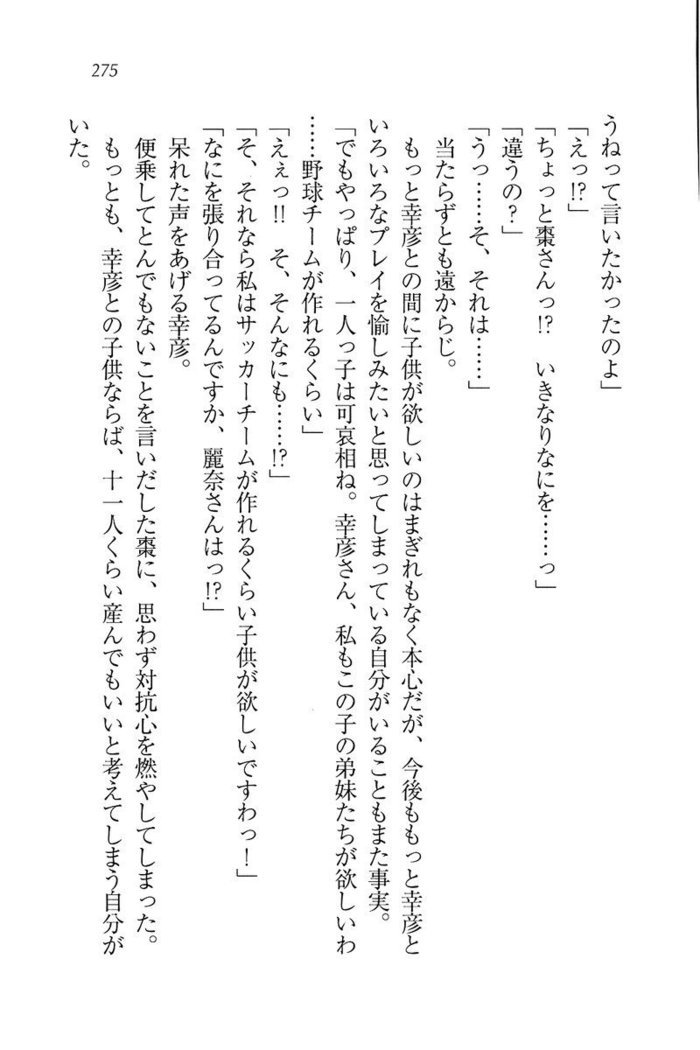 275
うねって言いたかったのよ」
「えっ!?」
「ちょっと棗さんっ!?　いきなりなにを……っ」
「違うの？」
「うっ……そ、それは……」
当たらずとも遠からじ。
もっと幸彦との間に子供が欲しいのはまぎれもなく本心だが、今後ももっと幸彦と
いろいろなプレイを愉しみたいと思ってしまっている自分がいることもまた事実。
「でもやっぱり、一人っ子は可哀相ね。幸彦さん、私もこの子の弟妹たちが欲しいわ
……野球チームが作れるくらい」
「えぇっ!!　そ、そんなにも……!?」
「そ、それなら私はサッカーチームが作れるくらい子供が欲しいですわっ！」
「なにを張り合ってるんですか、麗奈さんはっ!?」
呆れた声をあげる幸彦。
便乗してとんでもないことを言いだした棗に、思わず対抗心を燃やしてしまった。
もっとも、幸彦との子供ならば、十一人くらい産んでもいいと考えてしまう自分が
いた。